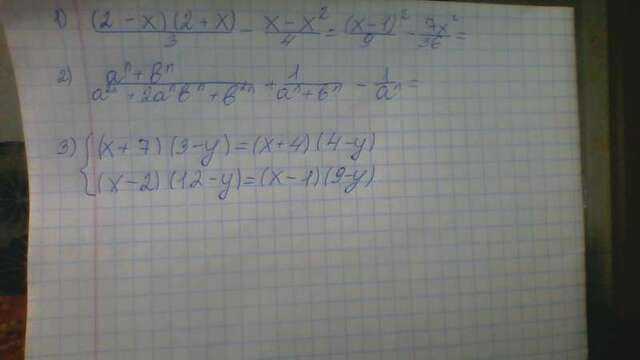 1) (2-x)(2+x)/3 - x-x²/4 = (x-1)²/9 - 7x²/36 =
2) aⁿ+bⁿ/a²ⁿ+2aⁿbⁿ+b²ⁿ + 1/aⁿ+bⁿ - 1/aⁿ =
3) { (x+7)(3-y)=(x+4)(4-y)
(x-2)(12-y)=(x-1)(9-y)